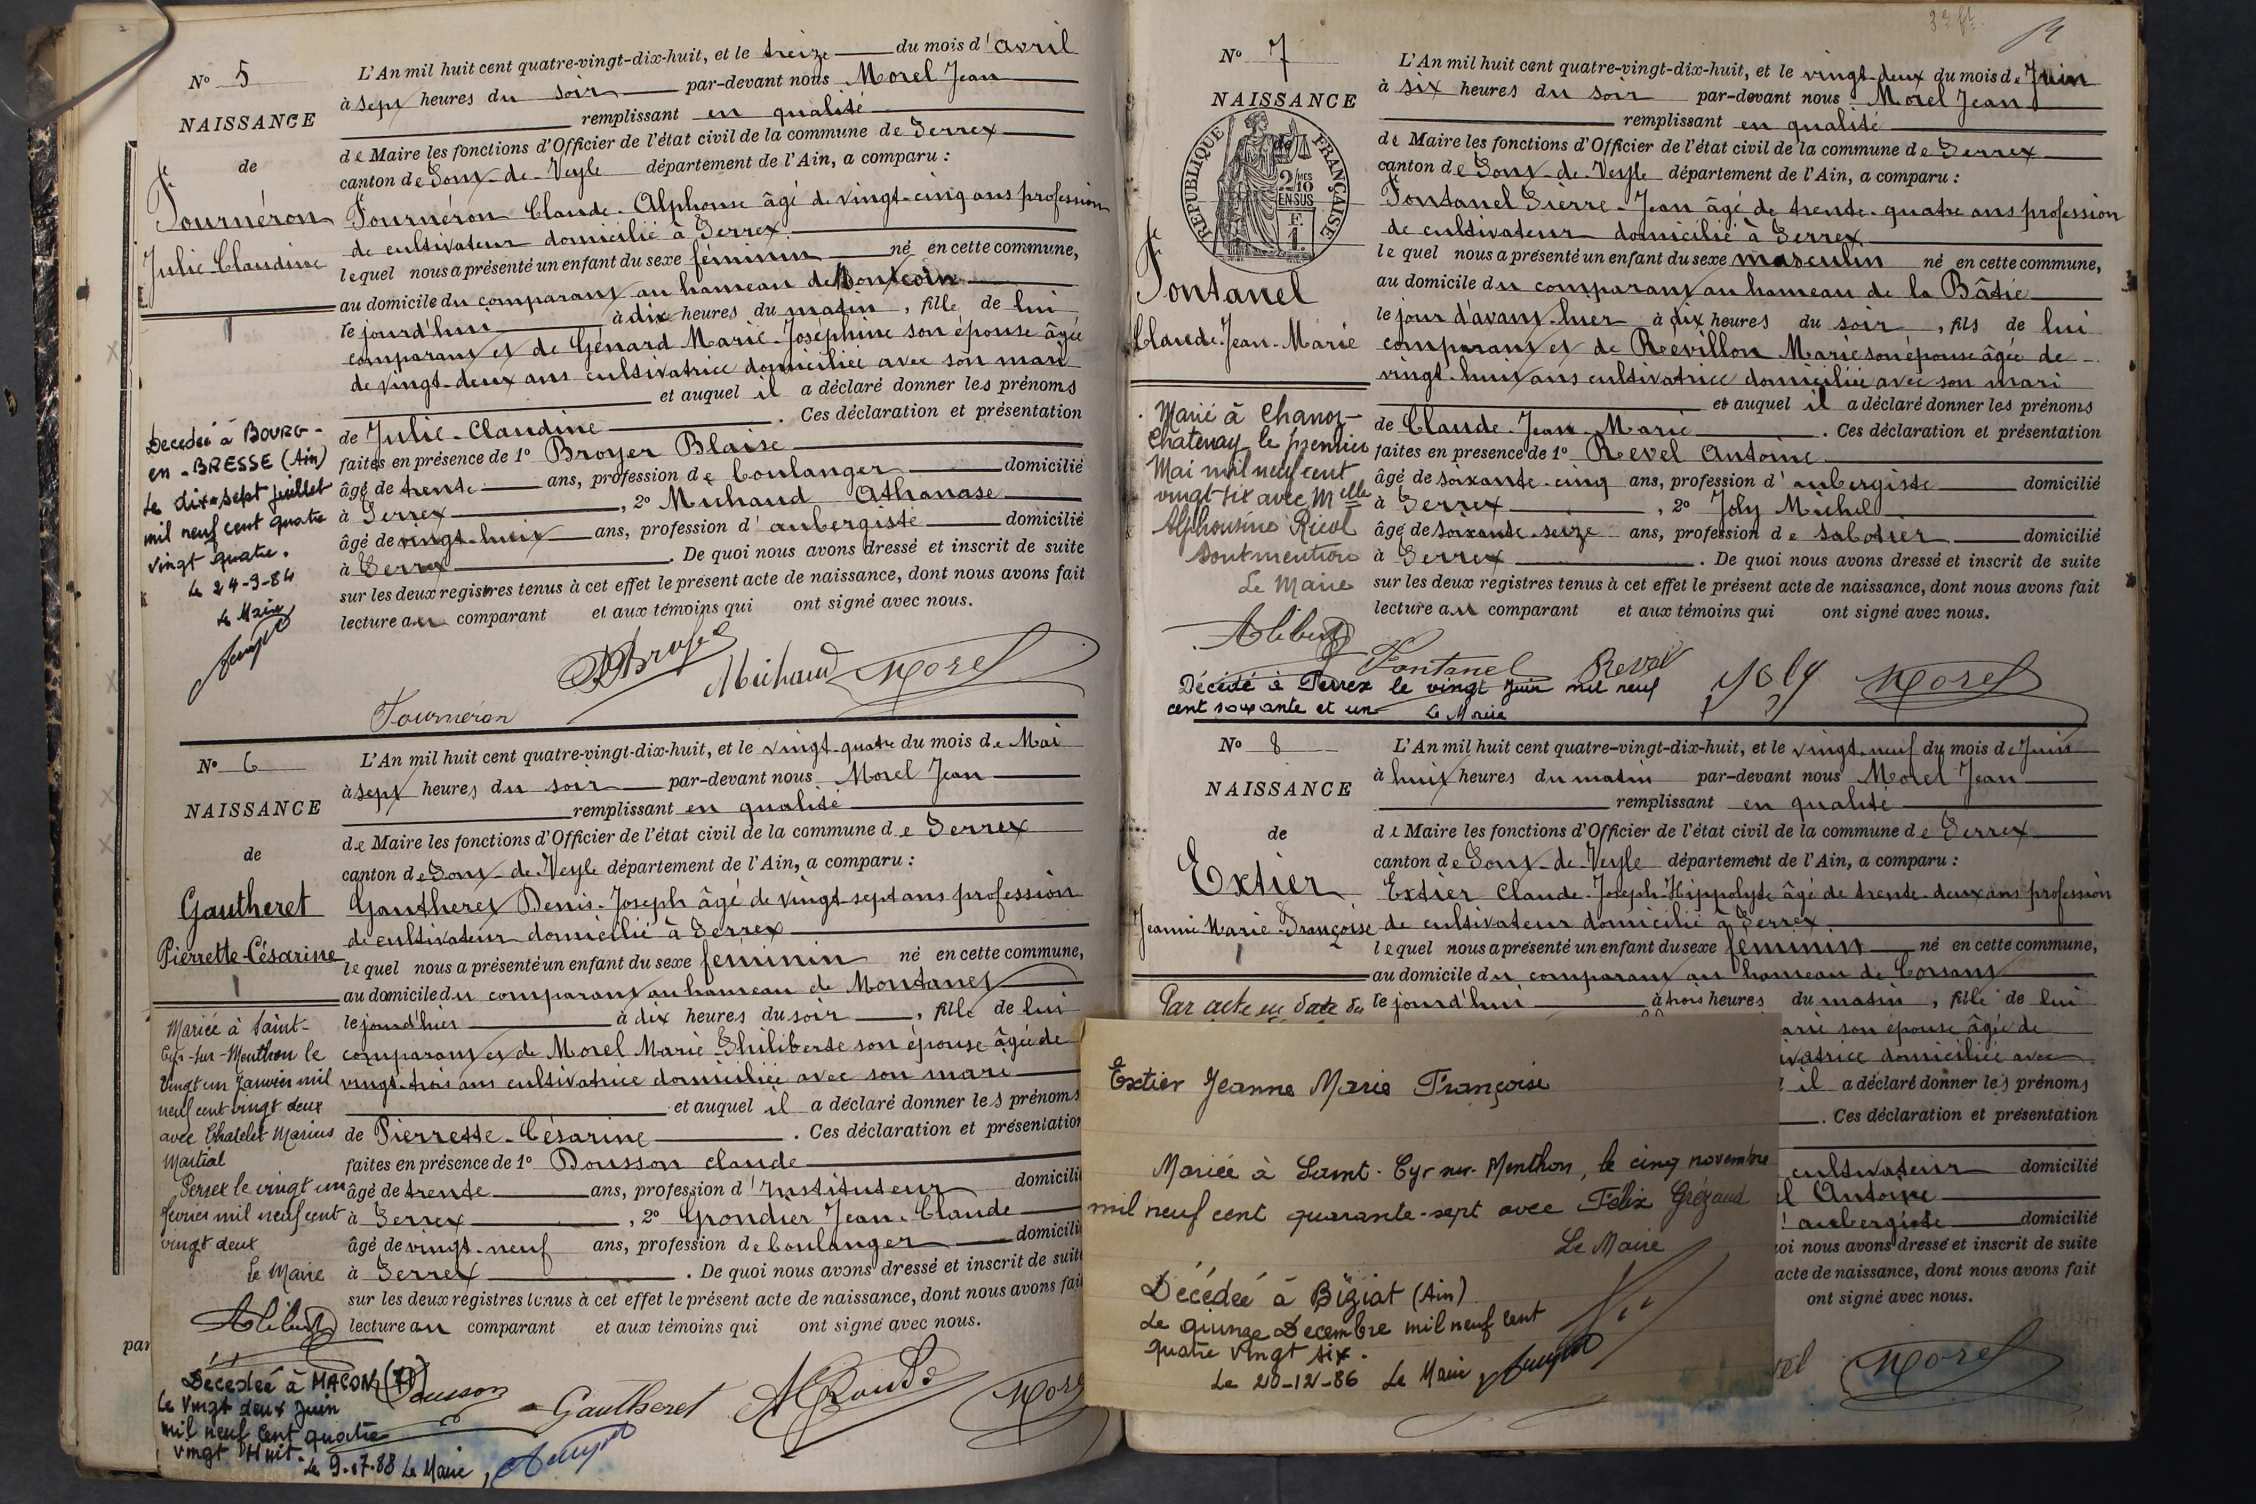 N° 5
NAISSANCE
de
Fournéron
Julie Claudine
1
L'An mil huit cent quatre-vingt-dix-huit, et le treize du mois d'avril
à sept heures du soir par-devant nous Morel Jean
remplissant en qualité
de Maire les fonctions d'Officier de l'état civil de la commune de Perrex
canton de Pont-de-Veyle département de l'Ain, a comparu :
Fournéron Claude-Alphonse âgé de vingt-cinq ans profession
de cultivateur domicilié à Perrex
lequel nous a présenté un enfant du sexe féminin né en cette commune,
au domicile du comparant au hameau de
le jourd'hui à dix heures du matin, fille de lui
comparant et de Génard Marie-Joséphine son épouse âgée
de vingt-deux ans cultivatrice domiciliée avec son mari
et auquel il a déclaré donner les prénoms
de Julie-Claudine. Ces déclaration et présentation
faites en présence de 1° Broyer Blaise
âgé de trente ans, profession de boulanger domicilié
à Perrex, 2° Michaud Athanase
âgé de vingt-huit ans, profession d'aubergiste domicilié
à Perrex. De quoi nous avons dressé et inscrit de suite
sur les deux registres tenus à cet effet le présent acte de naissance, dont nous avons fait
lecture au comparant et aux témoins qui ont signé avec nous.
Decedeé à BOURG-
en-BRESSE (Ain)
Le dix-sept juillet
mil neuf cent quatre
vingt quatre.
Le 24-9-84
Le Maire
Broyer
Michaud Morel
Fournéron
N° 6
NAISSANCE
de
Gautheret
Pierrette-Césarine
1
L'An mil huit cent quatre-vingt-dix-huit, et le vingt-quatre du mois de Mai
à sept heures du soir par-devant nous Morel Jean
remplissant en qualité
de Maire les fonctions d'Officier de l'état civil de la commune de Perrex
canton de Pont-de-Veyle département de l'Ain, a comparu :
Gautheret Denis-Joseph âgé de vingt-sept ans profession
de cultivateur domicilié à Perrex
lequel nous a présenté un enfant du sexe feminin né en cette commune,
au domicile du comparant au hameau de Montanet
le jourd'hier à dix heures du soir, fille de lui
comparant et de Morel Marie Philiberte son épouse âgée de
vingt-trois ans cultivatrice domiciliée avec son mari
et auquel il a déclaré donner les prénoms
de Pierrette-Césarine. Ces déclaration et présentation
faites en présence de 1° Dousson Claude
âgé de trente ans, profession d'Instituteur domicilié
à Perrex, 2° Grondier Jean-Claude
âgé de vingt-neuf ans, profession de boulanger domicilié
à Perrex. De quoi nous avons dressé et inscrit de suite
sur les deux registres tenus à cet effet le présent acte de naissance, dont nous avons fait
lecture au comparant et aux témoins qui ont signé avec nous.
Mariée à Saint-
Cyr-sur-Menthon le
Vingt un Janvier mil
neuf cent vingt deux
avec Chatelet Marius
Martial
Perrex le vingt un
février mil neuf cent
vingt deux
Le Maire
par
Décédeé à MACON (71)
Le Vingt deux Juin
mil neuf cent quatre
vingt Huit.
Le 9.07.88 Le Maire,
Dousson Gautheret Morel
N° 7
NAISSANCE
de
RÉPUBLIQUE FRANÇAISE
2/10MES
EN SUS
F.
1.
Fontanel
Claude-Jean-Marie
L'An mil huit cent quatre-vingt-dix-huit, et le vingt-deux du mois de Juin
à six heures du soir par-devant nous Morel Jean
remplissant en qualité
de Maire les fonctions d'Officier de l'état civil de la commune de Perrex
canton de Pont-de-Veyle département de l'Ain, a comparu :
Fontanel Pierre-Jean âgé de trente-quatre ans profession
de cultivateur domicilié à Perrex
lequel nous a présenté un enfant du sexe masculin né en cette commune,
au domicile du comparant au hameau de la Bâtie
le jour d'avant-hier à dix heures du soir, fils de lui
comparant et de Revillon Marie son épouse âgée de
vingt-huit ans cultivatrice domiciliée avec son mari
et auquel il a déclaré donner les prénoms
de Claude-Jean-Marie. Ces déclaration et présentation
faites en présence de 1° Revel Antoine
âgé de soixante-cinq ans, profession d'aubergiste domicilié
à Perrex, 2° Joly Michel
âgé de soixante-seize ans, profession de sabotier domicilié
à Perrex. De quoi nous avons dressé et inscrit de suite
sur les deux registres tenus à cet effet le présent acte de naissance, dont nous avons fait
lecture au comparant et aux témoins qui ont signé avec nous.
Marié à Chanoz-
Chatenay le premier
Mai mil neuf cent
vingt-six avec Melle
Alphonsine Ricol
dont mention
Le Maire
Fontanel Revel Joly Morel
Décédé à Perrex le vingt Juin mil neuf
cent soixante et un
Le Maire
N° 8
NAISSANCE
de
Extier
Jeanne Marie-Françoise
1
L'An mil huit cent quatre-vingt-dix-huit, et le vingt-neuf du mois de Juin
à huit heures du matin par-devant nous Morel Jean
remplissant en qualité
de Maire les fonctions d'Officier de l'état civil de la commune de Perrex
canton de Pont-de-Veyle département de l'Ain, a comparu :
Extier Claude-Joseph-Hippolyte âgé de trente-deux ans profession
de cultivateur domicilié à Perrex
lequel nous a présenté un enfant du sexe féminin né en cette commune,
au domicile du comparant au hameau de Corsant
le jourd'hui à trois heures du matin, fille de lui
Par acte en date du
arie son épouse âgée de
ivatrice domiciliée avec
il a déclaré donner les prénoms
. Ces déclaration et présentation
cultivateur domicilié
l Antoine
d'aubergiste domicilié
oi nous avons dressé et inscrit de suite
acte de naissance, dont nous avons fait
ont signé avec nous.
vel Morel
Extier Jeanne Marie Françoise
Mariée à Saint-Cyr-sur-Menthon, le cinq novembre
mil neuf cent quarante-sept avec Félix Grézaud
Le Maire
Décédeé à Biziat (Ain)
Le quinze Decembre mil neuf cent
quatre vingt six.
Le 20-12-86 Le Maire